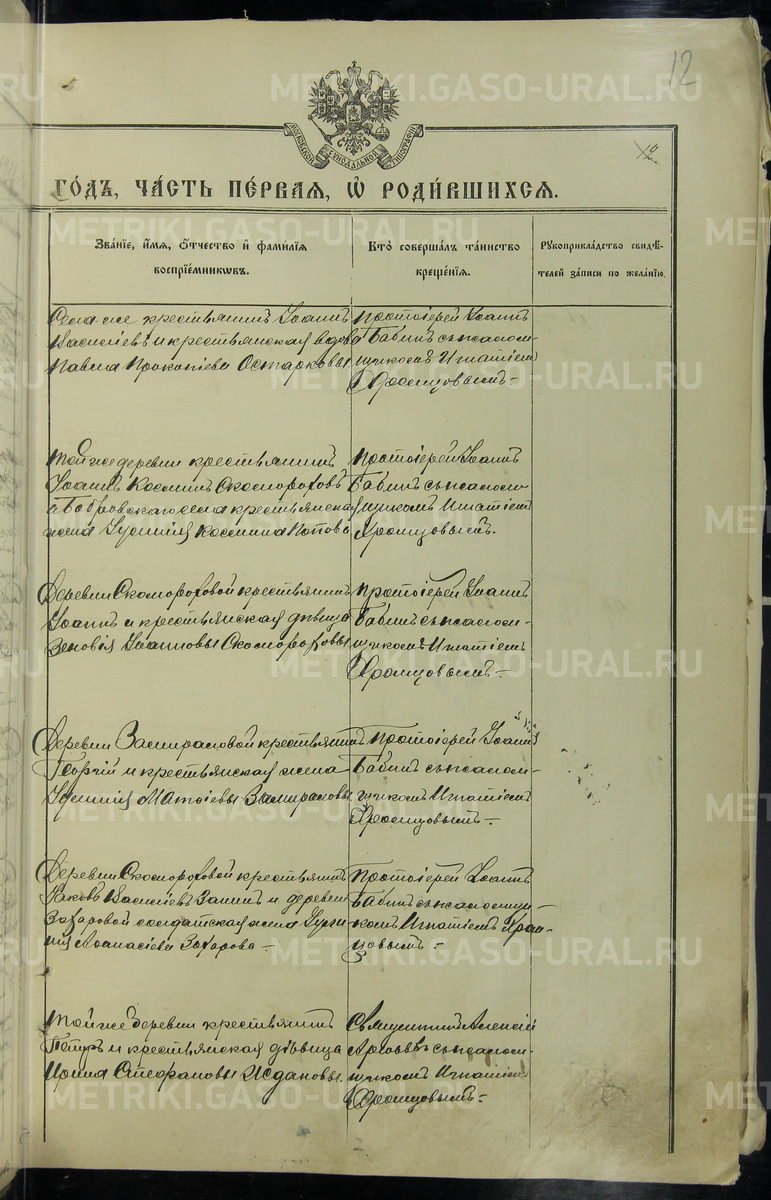 12
МОСКОВСКОЙ СИНОДАЛЬНОЙ ТИПОГРАФІИ
ГО́ДЪ, ЧА́СТЬ ПЕ́РВАЯ, Ѡ҆ РОДИ́ВШИХСЯ.
Зва́нїе, и҆́мя, ѻ҆́тчество и҆ фами́лїя воспрїе́мникѡвъ.
Кто̀ соверша́лъ та́инство креще́нїя.
Рꙋкоприкла́дство свидѣ́телей за́писи по жела́нїю.
Села же крестьянинъ Іоаннъ
Васильевъ и крестьянская вдова
Павла Прокопіева
Протоіерей Іоаннъ
Бабинъ съ псалом-
щикомъ Игнатіемъ
Той же деревни крестьянинъ
Іоаннъ Косминъ Скомороховъ
и Бобровскаго села крестьянская
жена Космина Попова
Протоіерей Іоаннъ
Бабинъ съ псалом-
щикомъ Игнатіемъ
Деревни Скомороховой крестьянинъ
Іоаннъ и крестьянская дѣвица
Зеновія Іоанновы Скомороховы
Протоіерей Іоаннъ
Бабинъ съ псалом-
щикомъ Игнатіемъ
Деревни крестьянинъ
Георгій и крестьянская жена
Протоіерей Іоаннъ
Бабинъ съ псалом-
щикомъ Игнатіемъ
Деревни Скомороховой крестьянинъ
Яковъ Васильевъ и деревни
Захаровой солдатская жена
Аѳанасіева Захарова
Протоіерей Іоаннъ
Бабинъ съ псаломщи-
комъ Игнатіемъ
Той же деревни крестьянинъ
Петръ и крестьянская дѣвица
Ирина Стефановы Ждановы
Священникъ Алексій
съ псалом-
щикомъ Игнатіемъ
METRIKI.GASO-URAL.RU